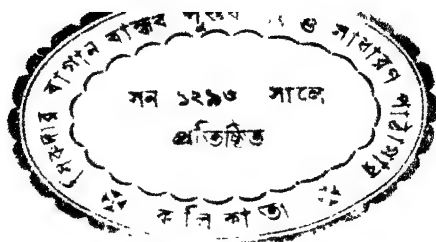 বাগান বান্ধব ও সাধারণ পাঠাগার
সন ১২৯৩ সালে
প্রতিষ্ঠিত
কলিকাতা